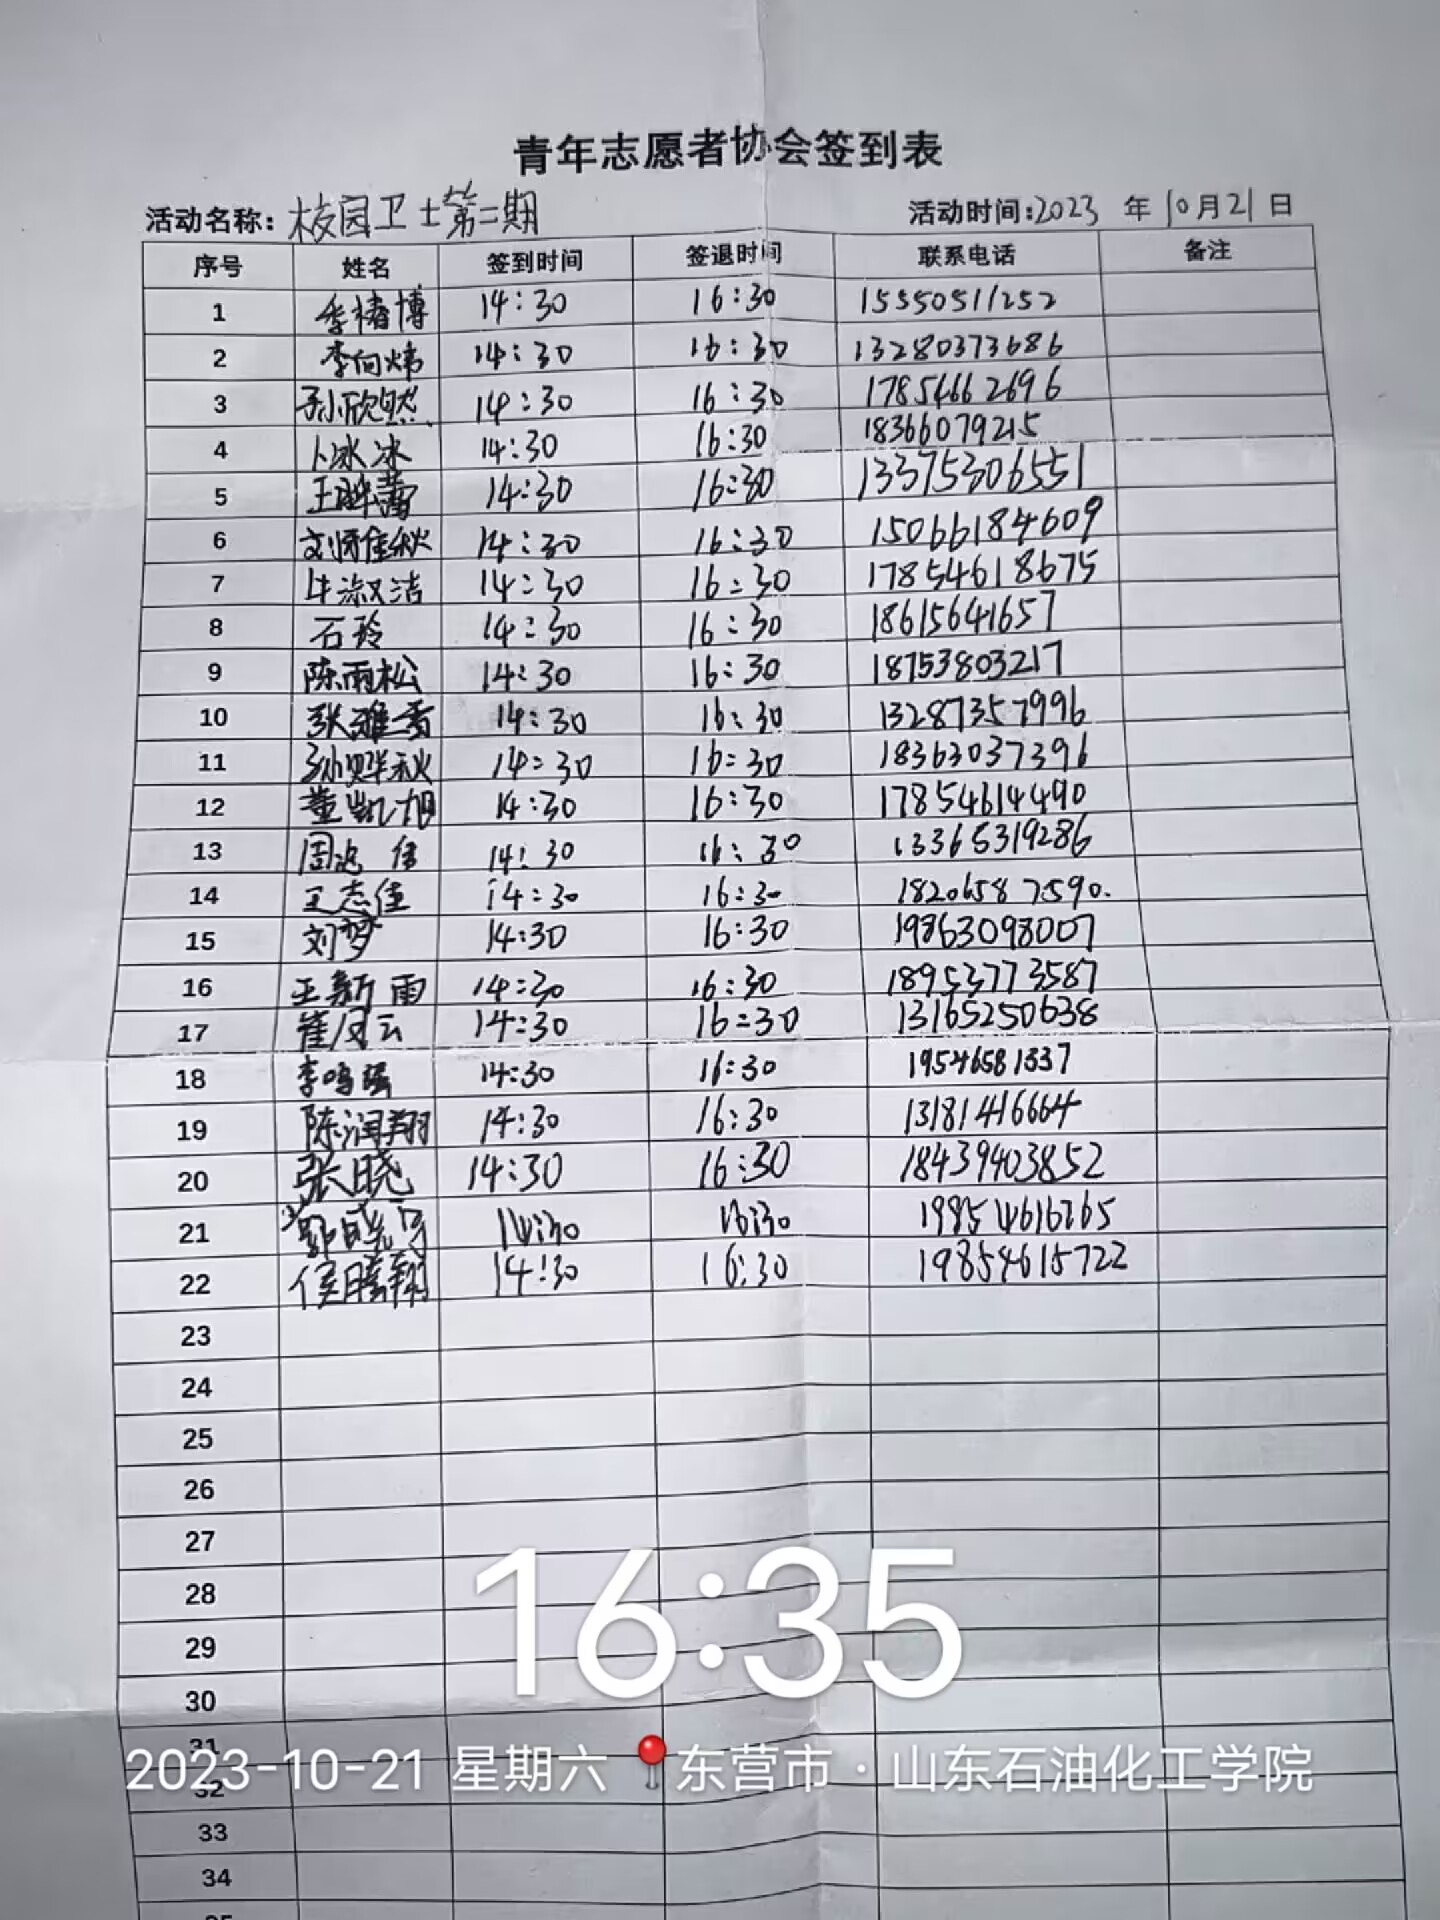 青年志愿者协会签到表
活动名称: 校园卫士第二期 活动时间:2023 年 10月 21 日
序号 姓名 签到时间 签退时间 联系电话 备注
1 李椿博 14:30 16:30 15550511252
2 李向炜 14:30 16:30 13280373686
3 孙欣然 14:30 16:30 17854662696
4 卜冰冰 14:30 16:30 18366079215
5 14:30 16:30 13375306551
6 14:30 16:30 15066184609
7 牛淑洁 14:30 16:30 17854618675
8 石玲 14:30 16:30 18615641657
9 陈雨松 14:30 16:30 18753803217
10 张雅秀 14:30 16:30 13287357996
11 14:30 16:30 18363037396
12 董凯旭 14:30 16:30 17854614490
13 14:30 16:30 13365319286
14 王志佳 14:30 16:30 18206587590.
15 刘梦 14:30 16:30 19863098007
16 王新雨 14:30 16:30 18953773587
17 崔凤云 14:30 16:30 13165250638
18 李鸣强 14:30 16:30 19546581337
19 陈润翔 14:30 16:30 13181416664
20 张晓 14:30 16:30 18439403852
21 14:30 16:30
22 侯腾翔 14:30 16:30 19854615722
23
24
25
26
27
28
29
30
31
32
33
34
35
16:35
2023-10-21 星期六 东营市·山东石油化工学院